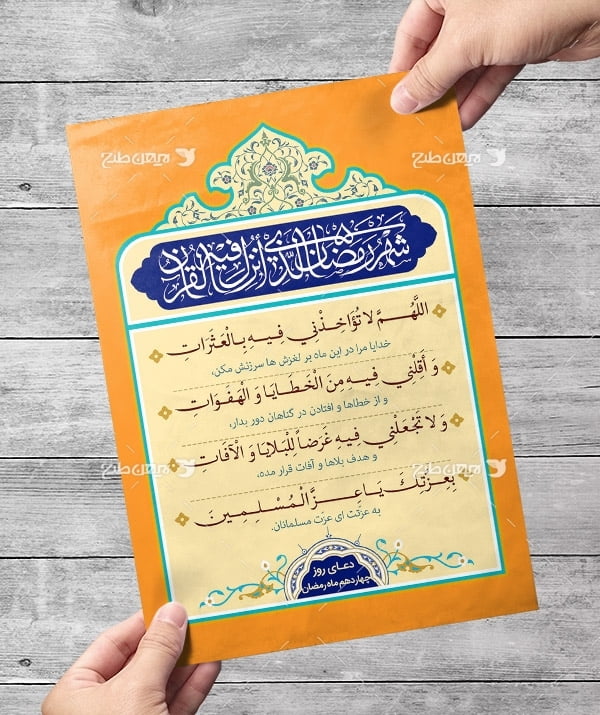 شهر رمضان الذي أنزل فيه القرآن
اللَّهُمَّ لا تُؤَاخِذْنِي فِيهِ بِالْعَثَرَاتِ
خدایا مرا در این ماه بر لغزش ها سرزنش مکن،
وَ أَقِلْنِي فِيهِ مِنَ الْخَطَايَا وَ الْهَفَوَاتِ
و از خطاها و افتادن در گناهان دور بدار،
وَ لا تَجْعَلْنِي فِيهِ غَرَضاً لِلْبَلايَا وَ الْآفَاتِ
و هدف بلاها و آفات قرار مده،
بِعِزَّتِكَ يَا عِزَّ الْمُسْلِمِينَ
به عزّتت ای عزّت مسلمانان.
دعای روز
چهاردهم ماه رمضان
میهن طرح